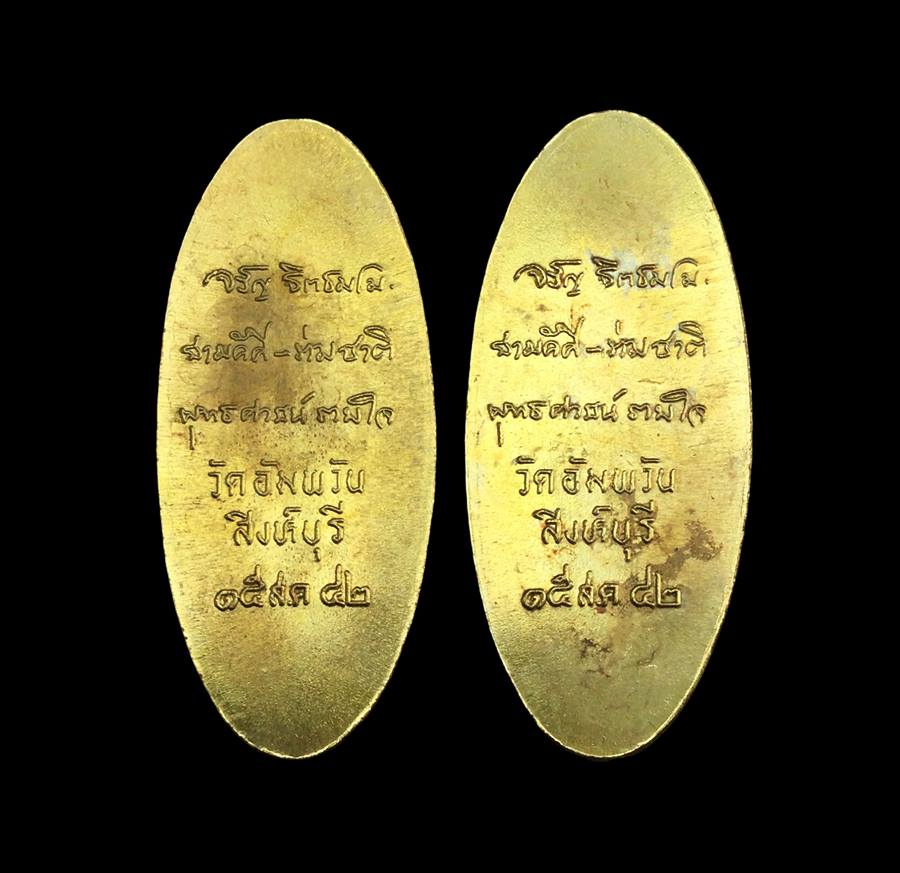 จรัญ ฐิตธมฺโม.
สามัคคี - ห่มชาติ
พุทธศาสน์ ห่มใจ
วัดอัมพวัน
สิงห์บุรี
๑๕ ส.ค ๔๒
จรัญ ฐิตธมฺโม.
สามัคคี - ห่มชาติ
พุทธศาสน์ ห่มใจ
วัดอัมพวัน
สิงห์บุรี
๑๕ ส.ค ๔๒